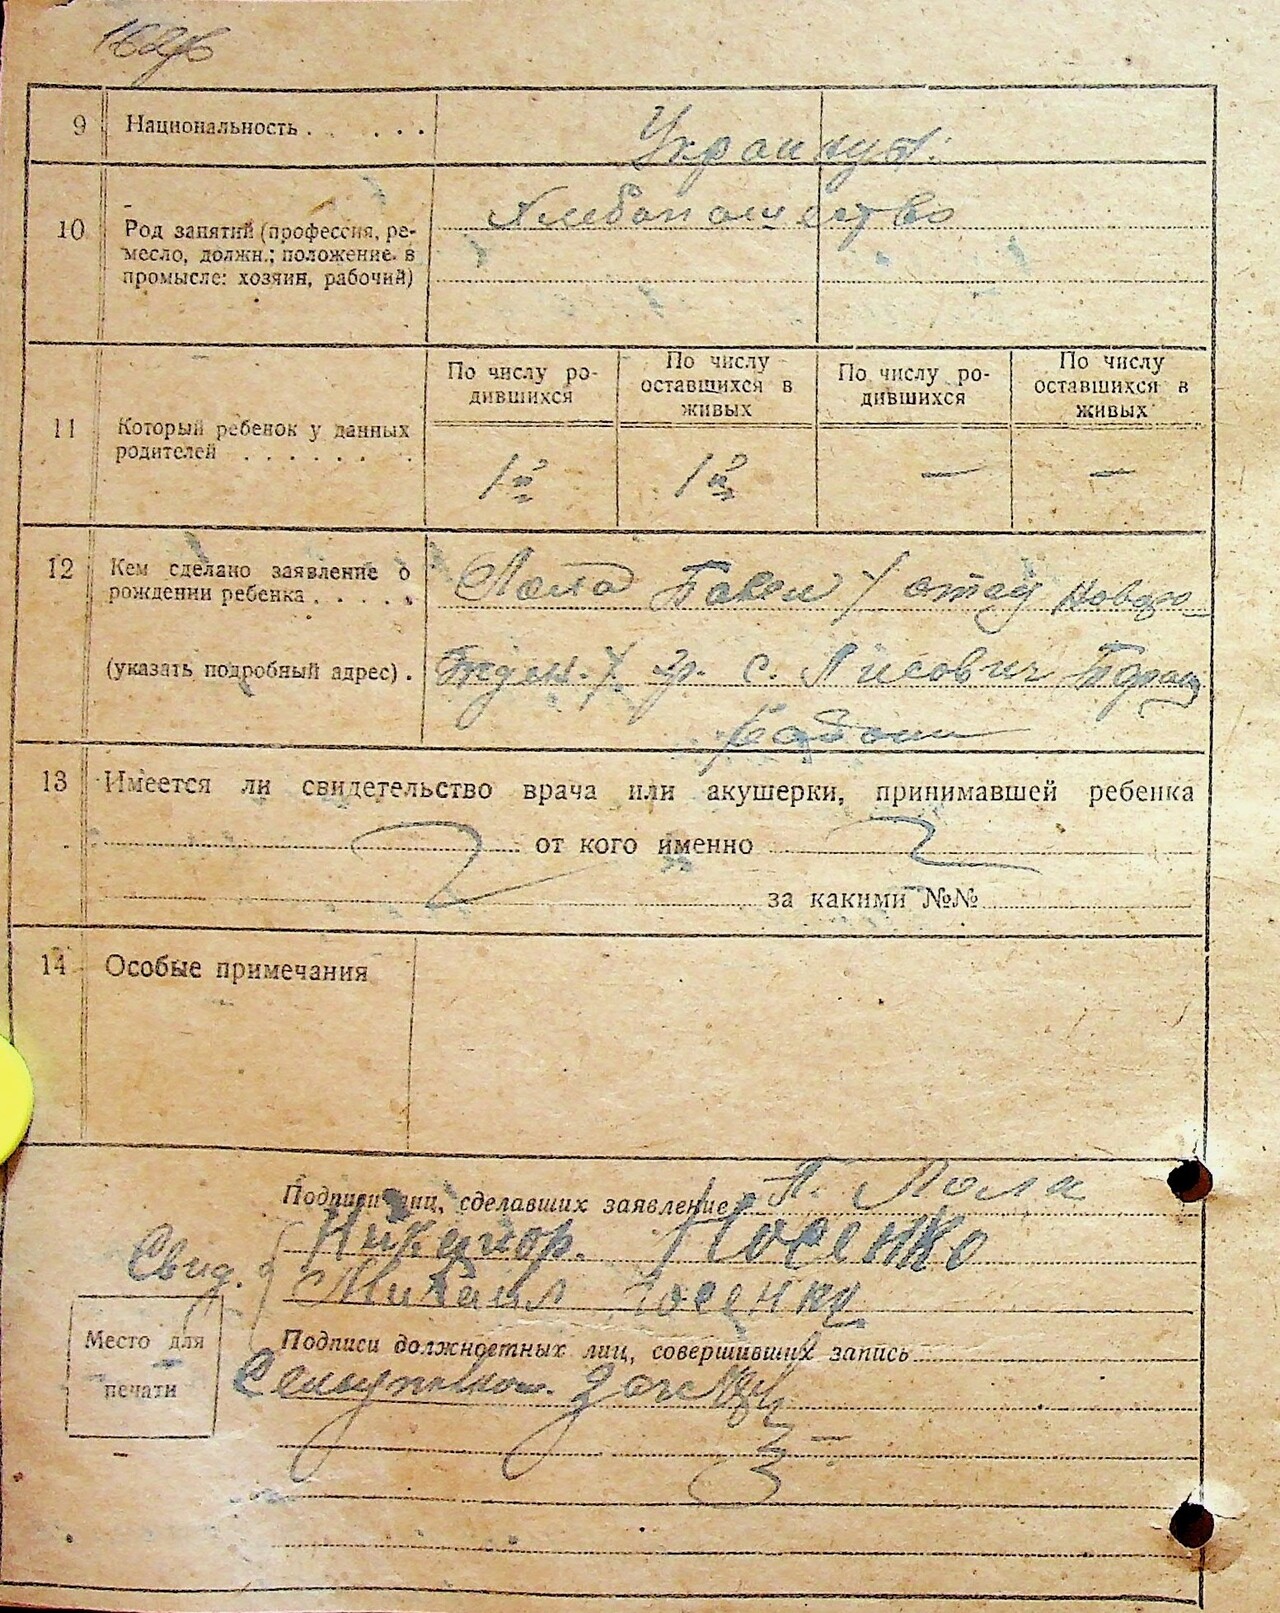 9 Национальность . . . . .
10 Род занятий (профессия, ре-
месло, должн.; положение в
промысле: хозяин, рабочий)
Хлебопашество
По числу ро-
дившихся
По числу
оставшихся в
живых
По числу ро-
дившихся
По числу
оставшихся в
живых
11 Который ребенок у данных
родителей . . . . . . .
1й 1й — —
12 Кем сделано заявление о
рождении ребенка . . . . .
Павел / отец Новоро-
(указать подробный адрес) .
гр. с. Лисович
13 Имеется ли свидетельство врача или акушерки, принимавшей ребенка
от кого именно
за какими №№
14 Особые примечания
Подписи лиц, сделавших заявление П. Лола
Свид. Никифор. Носенко
Михаил Носенко
Место для
печати
Подписи должностных лиц, совершивших запись